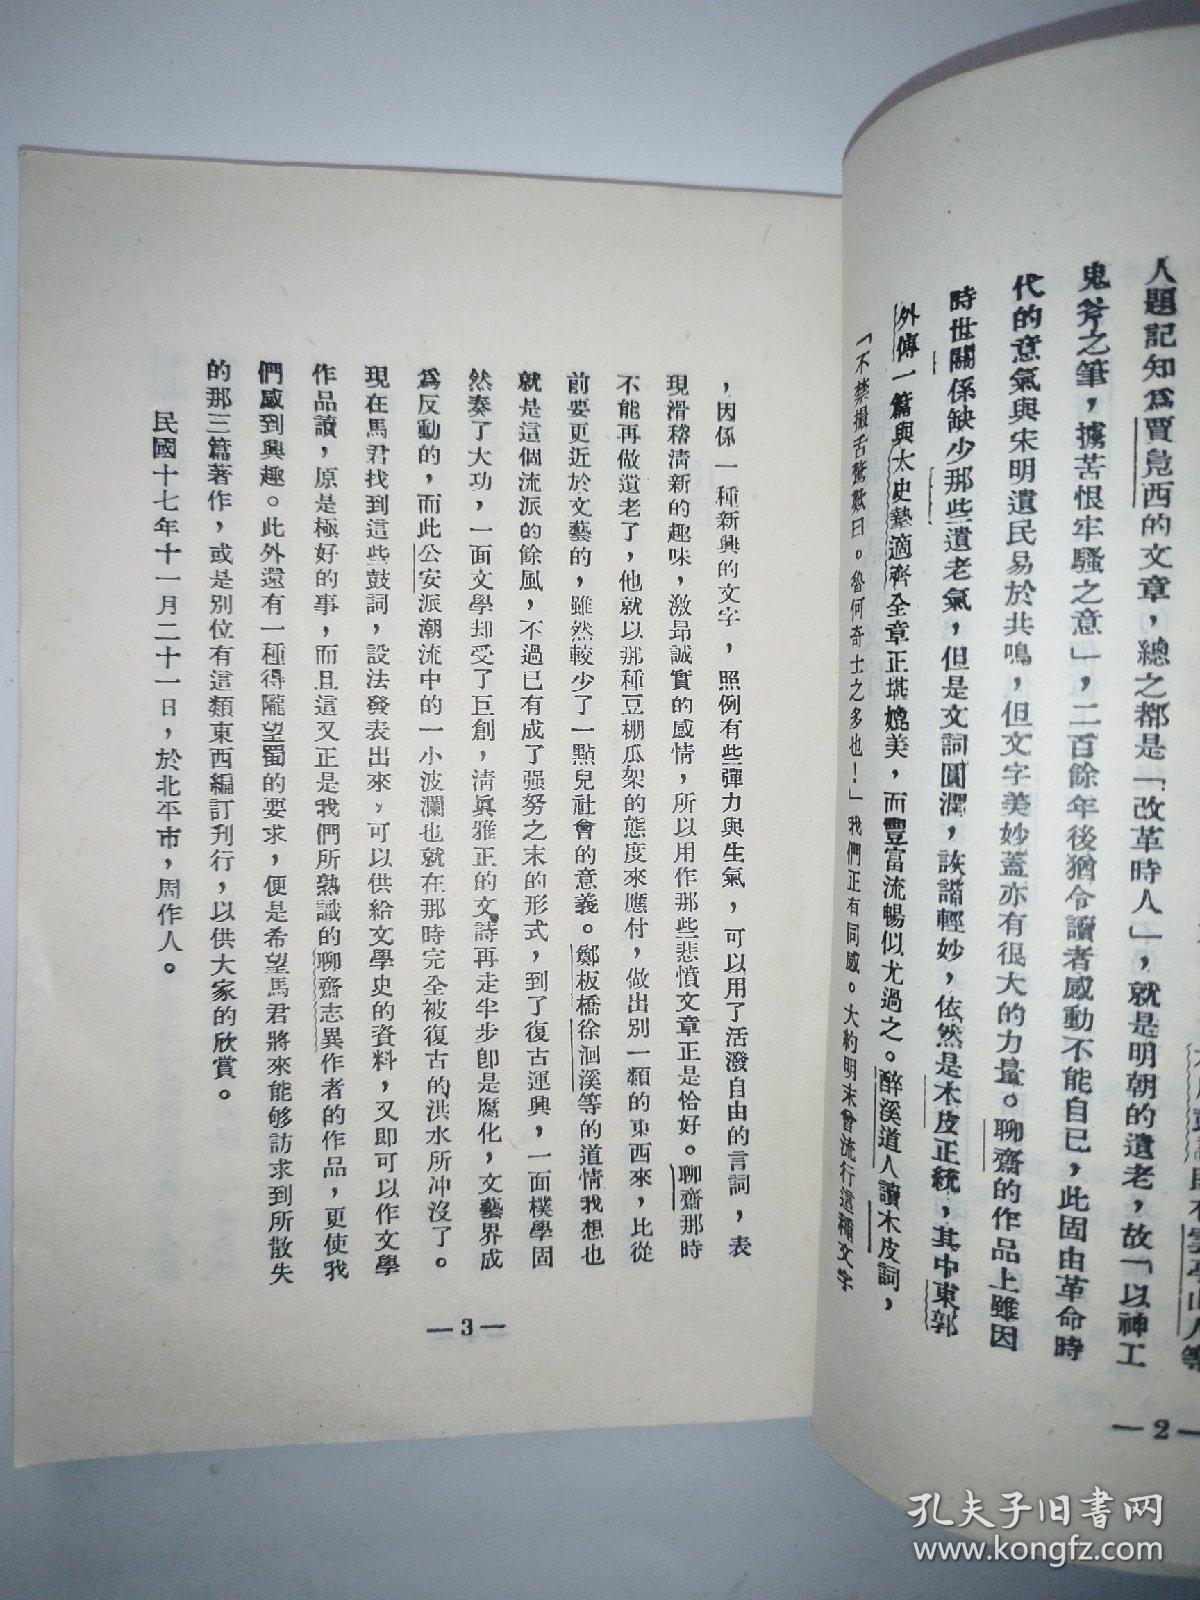 人題記知爲賈鳧西的文章，總之都是「改革時人」，就是明朝的遺老，故「以神工
鬼斧之筆，擄苦恨牢騷之意」，二百餘年後猶令讀者感動不能自已，此固由革命時
代的意氣與宋明遺民易於共鳴，但文字美妙蓋亦有很大的力量。聊齋的作品上雖因
時世關係缺少那些遺老氣，但是文詞圓潤，詼諧輕妙，依然是木皮正統，其中東郭
外傳一篇與太史摯適齊全章正堪媲美，而豐富流暢似尤過之。醉溪道人讀木皮詞，
「不禁撮舌驚歎曰。魯何奇士之多也！」我們正有同感。大約明末曾流行這種文字
—2—
，因係一種新興的文字，照例有些彈力與生氣，可以用了活潑自由的言詞，表
現滑稽清新的趣味，激昂誠實的感情，所以用作那些悲憤文章正是恰好。聊齋那時
不能再做遺老了，他就以那種豆棚瓜架的態度來應付，做出別一類的東西來，比從
前要更近於文藝的，雖然較少了一點兒社會的意義。鄭板橋徐洄溪等的道情我想也
就是這個流派的餘風，不過已有成了强努之末的形式，到了復古運興，一面樸學固
然奏了大功，一面文學却受了巨創，清眞雅正的文詩再走半步卽是腐化，文藝界成
爲反動的，而此公安派潮流中的一小波瀾也就在那時完全被復古的洪水所冲沒了。
現在馬君找到這些鼓詞，設法發表出來，可以供給文學史的資料，又即可以作文學
作品讀，原是極好的事，而且這又正是我們所熟識的聊齋志異作者的作品，更使我
們感到興趣。此外還有一種得隴望蜀的要求，便是希望馬君將來能够訪求到所散失
的那三篇著作，或是別位有這類東西編訂刊行，以供大家的欣賞。
民國十七年十一月二十一日，於北平市，周作人。
—3—
孔夫子旧书网
www.kongfz.com